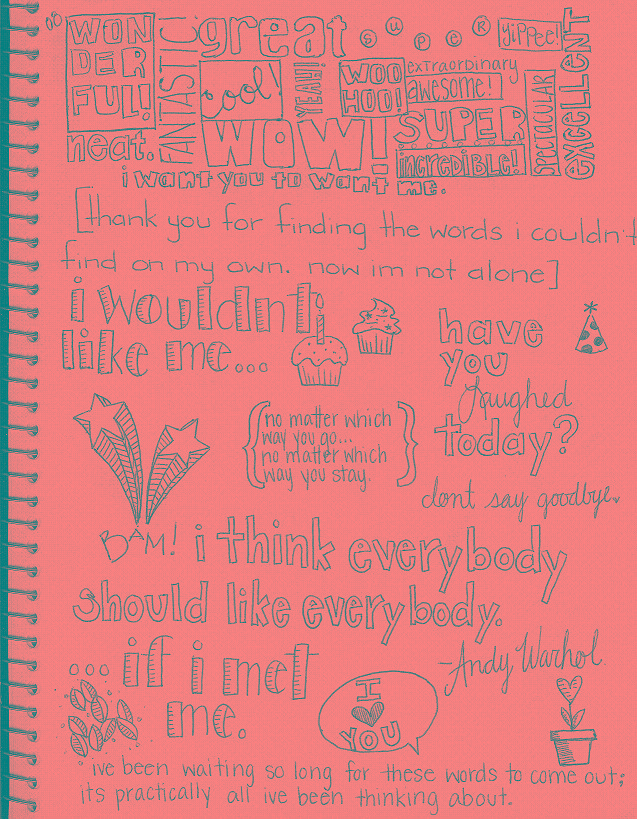 WON
DER
FUL!
neat.
FANTASTIC
great
super
yippee!
cool!
YEAH!
WOO
HOO!
extraordinary
awesome!
WOW!
SUPER
incREDiBLE!
SPECTACULAR
EXCELLENT
i want you to want me.
[thank you for finding the words i couldn't
find on my own. now im not alone]
i wouldnt
like me...
have
you
laughed
today?
{no matter which
way you go...
no matter which
way you stay.}
dont say goodbye.
BAM!
i think everybody
should like everybody.
-Andy Warhol.
...if i met
me.
I
YOU
ive been waiting so long for these words to come out;
its practically all ive been thinking about.